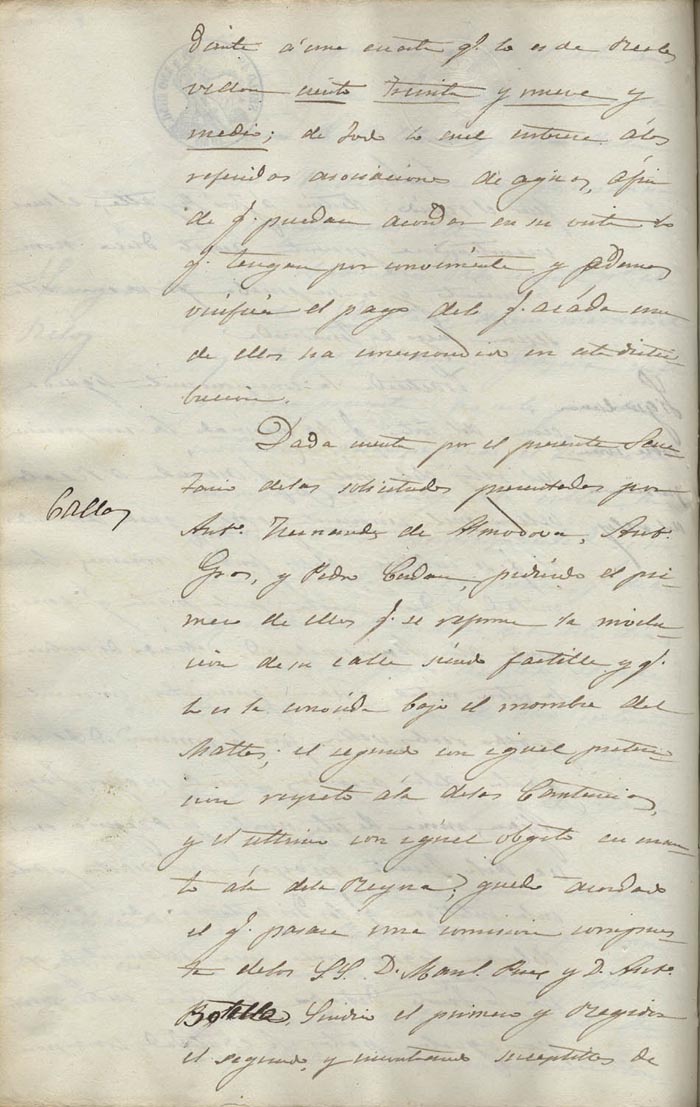 diente á una cuarta q.e lo es de Reales
vellon ciento treinta y nueve y
medio; de todo lo cual entere á las
referidas asociaciones de aguas, á fin
de q.e puedan acordar en su vista lo
q.e tengan por conveniente y
el pago del q.e a cada una
de ellas ha correspondido en esta distri
bucion.
Dada cuenta por el presente Secre
tario de las solicitudes presentadas por
Calles
Ant.o Hernandez de Almodova, Ant.o
Gros, y Pedro pidiendo el pri
mero de ellos q.e se reforme la nivela
cion de su calle siendo factible y q.e
lo es la conocida bajo el nombre del
el segundo con igual preten
cion respeto á la de las
y el ultimo con igual obgeto en cuan
to á la dela Reyna; quedó acordado
el q.e pasara una comision compues
ta delos SS. D. Man.l y D. Ant.o
Botella, Sindico el primero y Regidor
el segundo, y encontrando suceptibles de